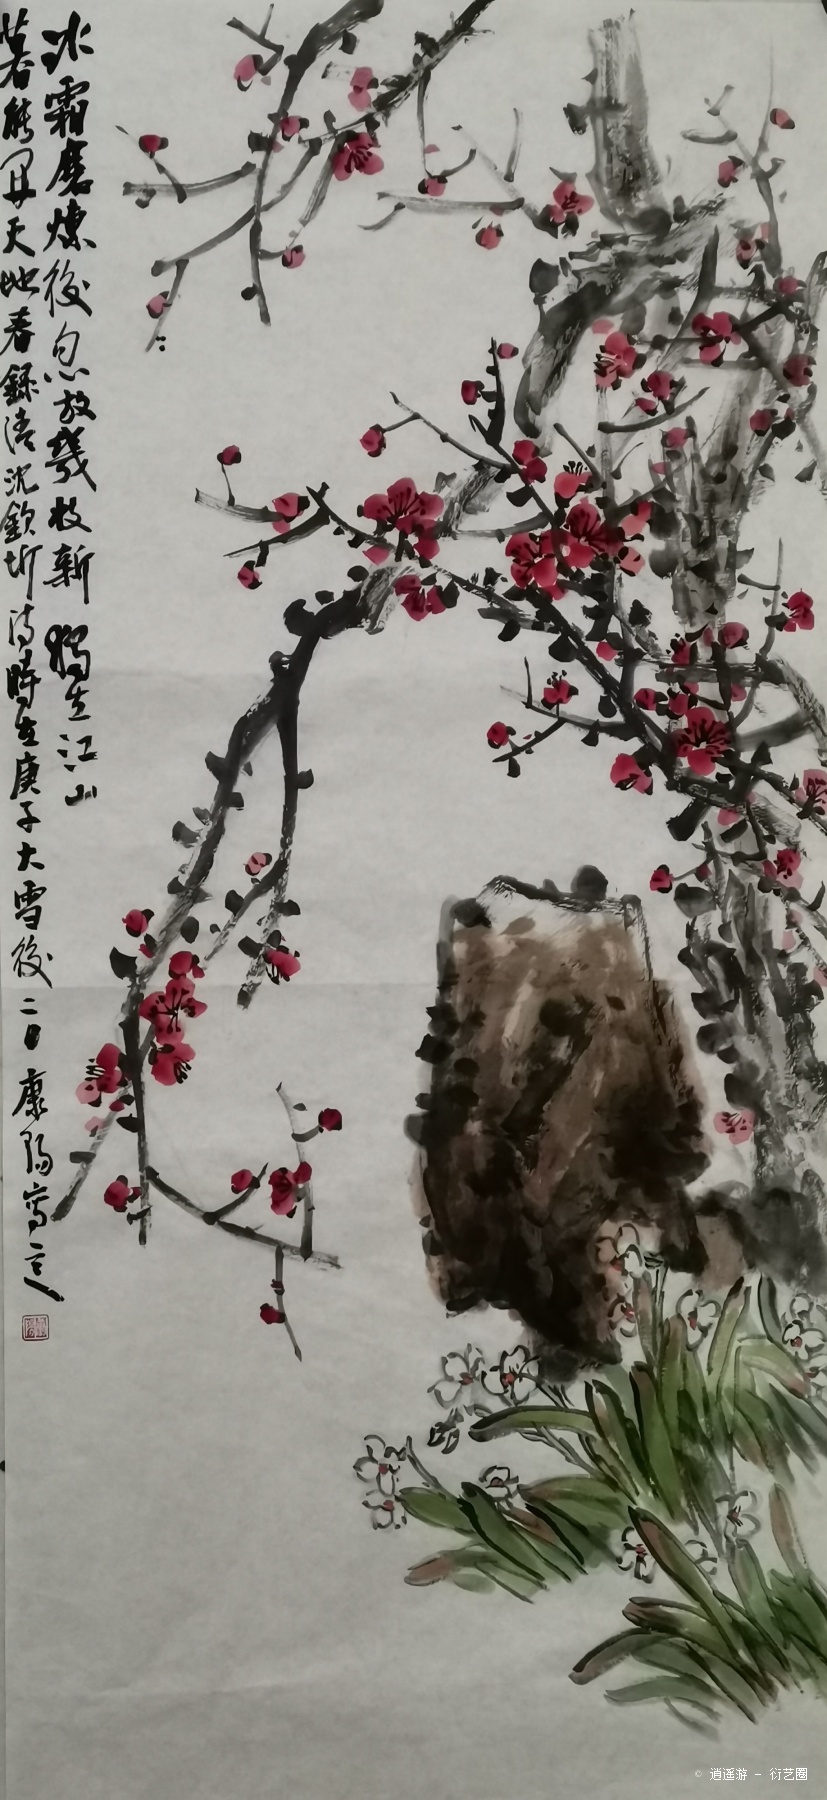 冰霜磨煉後忽放幾枝新獨立江山
暮能開天地春錄清沈欽圻詩時在庚子大雪後二日康陽寫之
© 逍遥游 - 衍艺圈